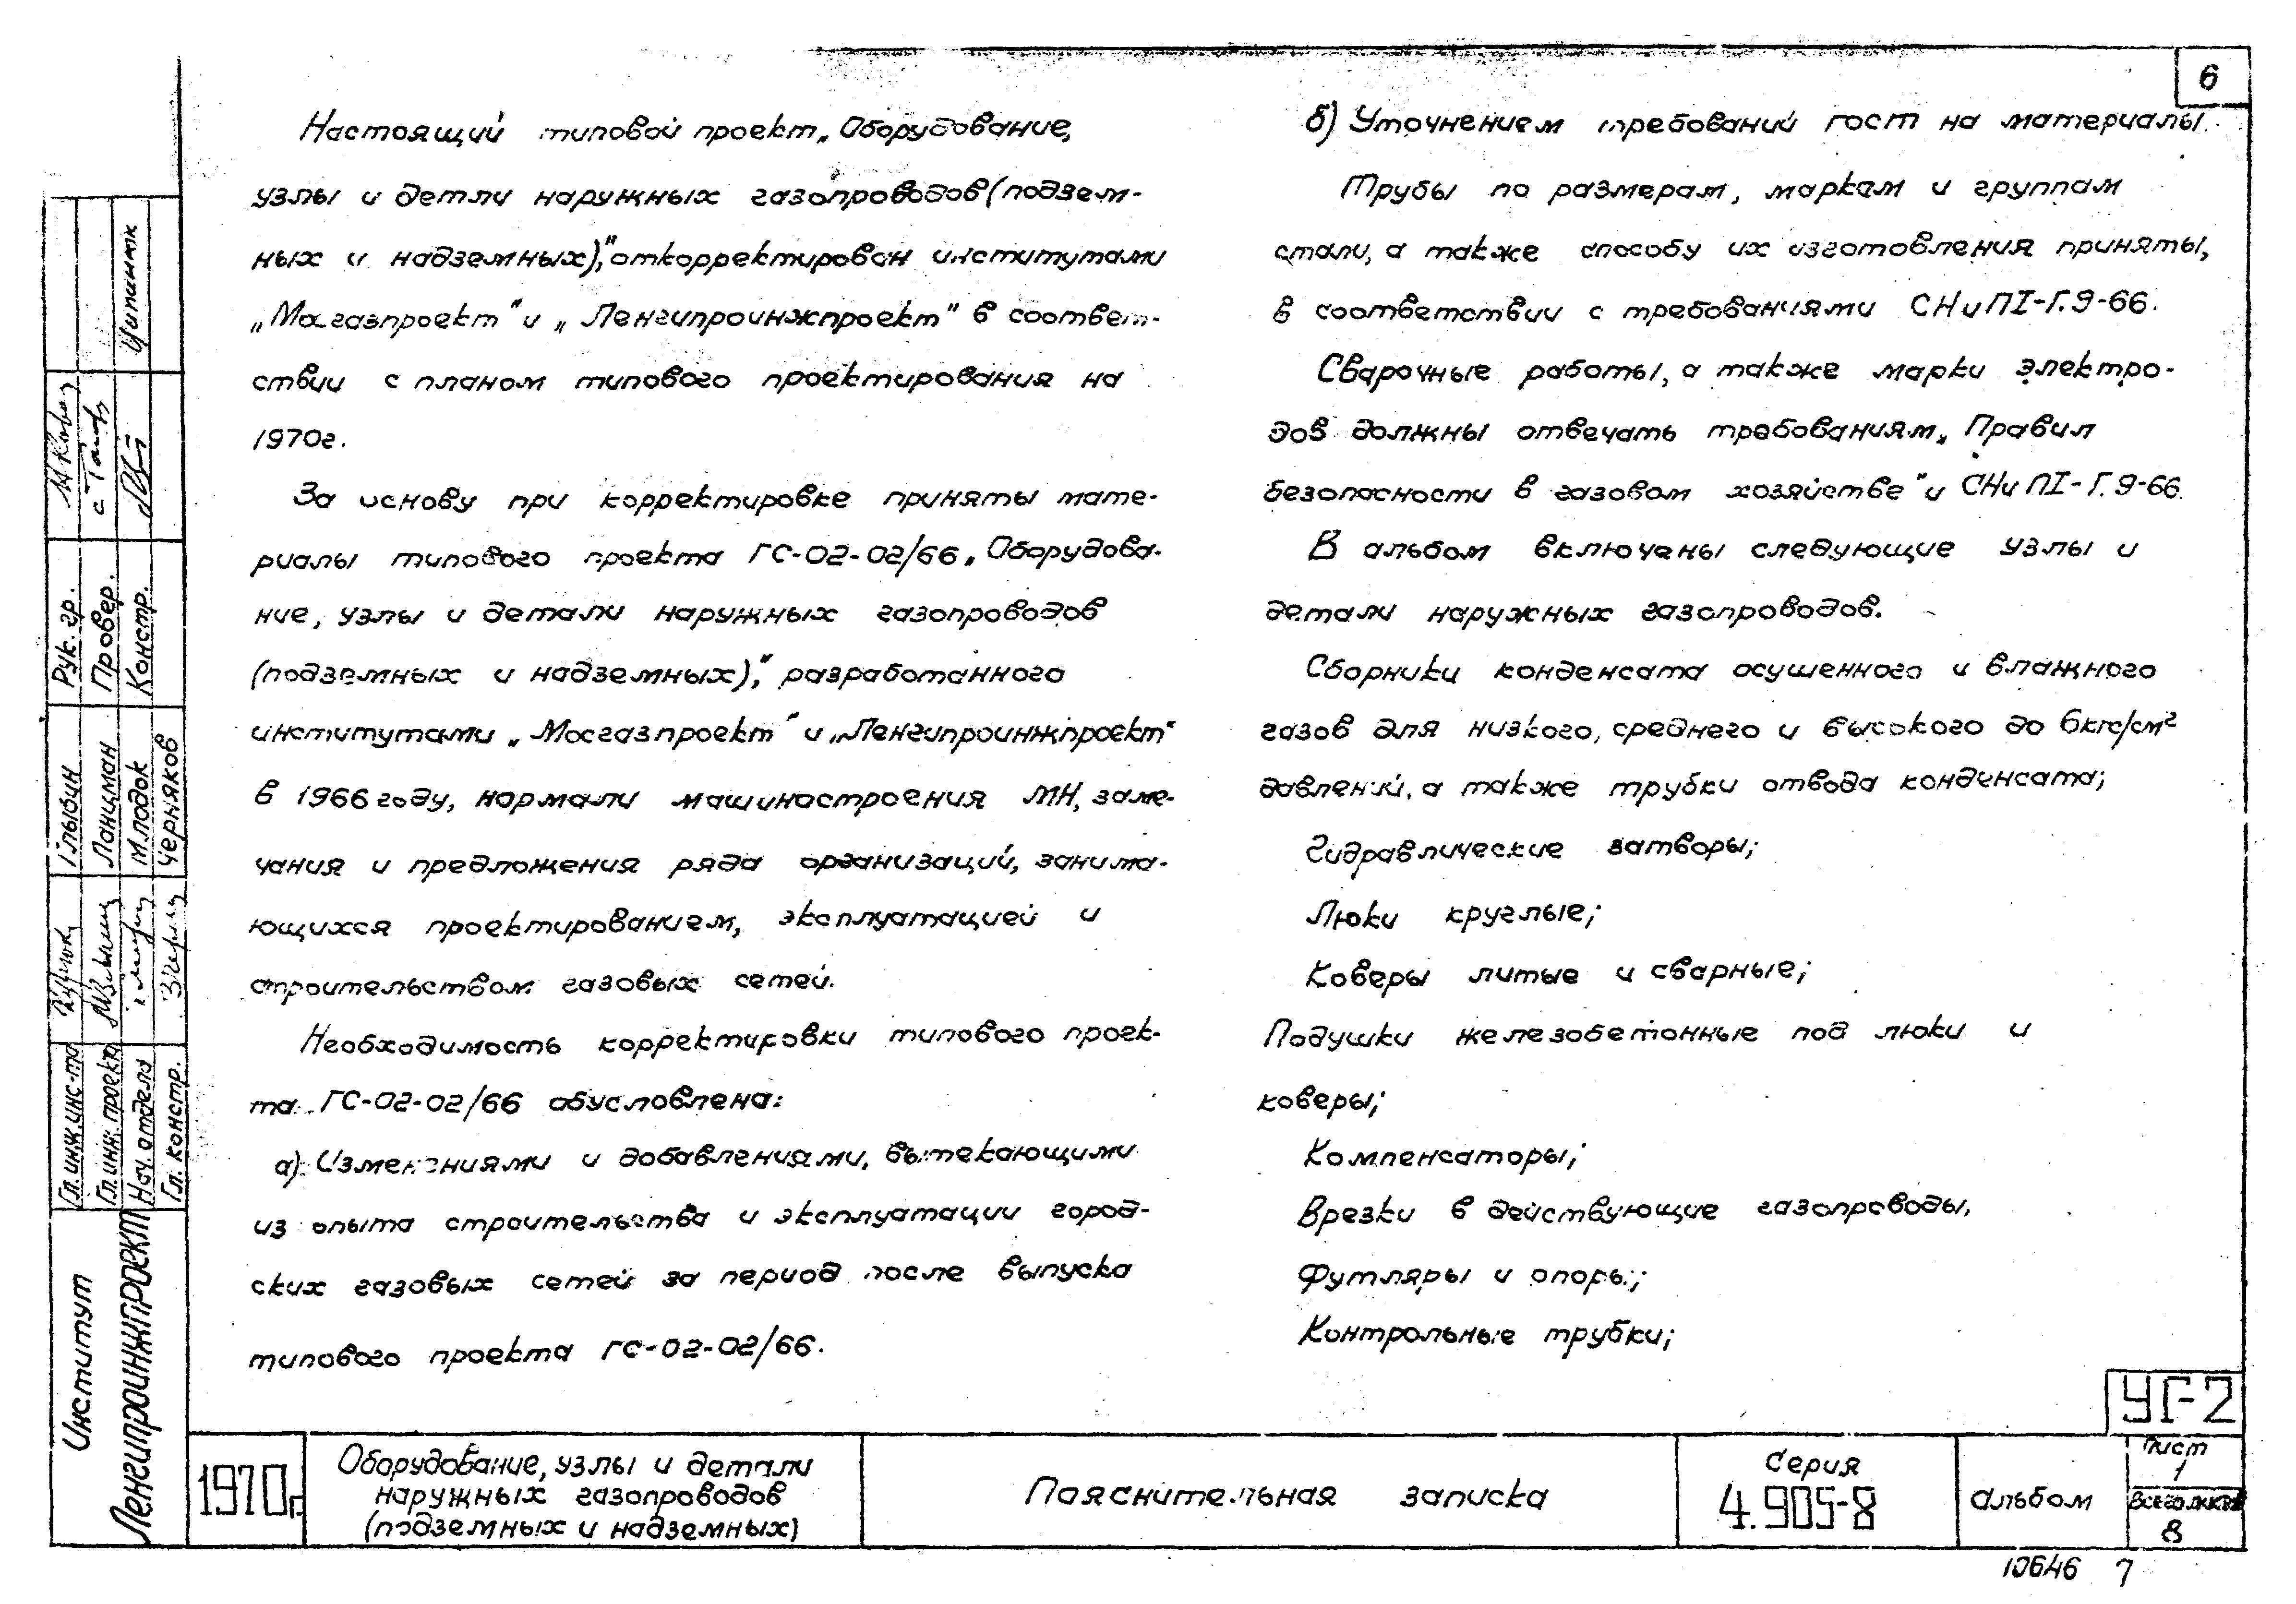 6
Настоящий типовой проект „Оборудование,
узлы и детли наружных газопроводов (подзем-
ных и надземных)," откорректирован институтами
„Мосгазпроект" и „Ленгипроинжпроект" в соответ-
ствии с планом типового проектирования на
1970г.
За основу при корректировке приняты мате-
риалы типового проекта ГС-02-02/66 „Оборудова-
ние, узлы и детали наружных газопроводов
(подземных и надземных)," разработанного
институтами „Мосгазпроект" и „Ленгипроинжпроект"
в 1966 году, нормали машиностроения МН, заме-
чания и предложения ряда организаций, занима-
ющихся проектированием, эксплуатацией и
строительством газовых сетей.
Необходимость корректировки типового проек-
та ГС-02-02/66 обусловлена:
а) Изменениями и добавлениями, вытекающими
из опыта строительства и эксплуатации город-
ских газовых сетей за период после выпуска
типового проекта ГС-02-02/66.
б) Уточнением требований ГОСТ на материалы.
Трубы по размерам, маркам и группам
стали, а также способу их изготовления приняты,
в соответствии с требованиями СНиПI-Г.9-66.
Сварочные работы, а также марки электро-
дов должны отвечать требованиям „Правил
безопасности в газовом хозяйстве" и СНиПI-Г.9-66.
В альбом включены следующие узлы и
детали наружных газопроводов.
Сборники конденсата осушенного и влажного
газов для низкого, среднего и высокого до 6кгс/см²
давлений, а также трубки отвода конденсата;
Гидравлические затворы;
Люки круглые;
Коверы литые и сварные;
Подушки железобетонные под люки и
коверы;
Компенсаторы;
Врезки в действующие газопроводы,
Футляры и опоры;
Контрольные трубки;
Институт
Ленгипроинжпроект
Гл. инж. инс-та
Гл. инж. проекта
Нач. отдела
Гл. констр.
Ланцман
Младок
Черняков
Рук. гр.
Провер.
Констр.
Ципишк
УГ-2
1970г.
Оборудование, узлы и детали
наружных газопроводов
(подземных и надземных)
Пояснительная записка
Серия
4.905-8
Альбом
Лист
1
Всего листов
8
10646 7